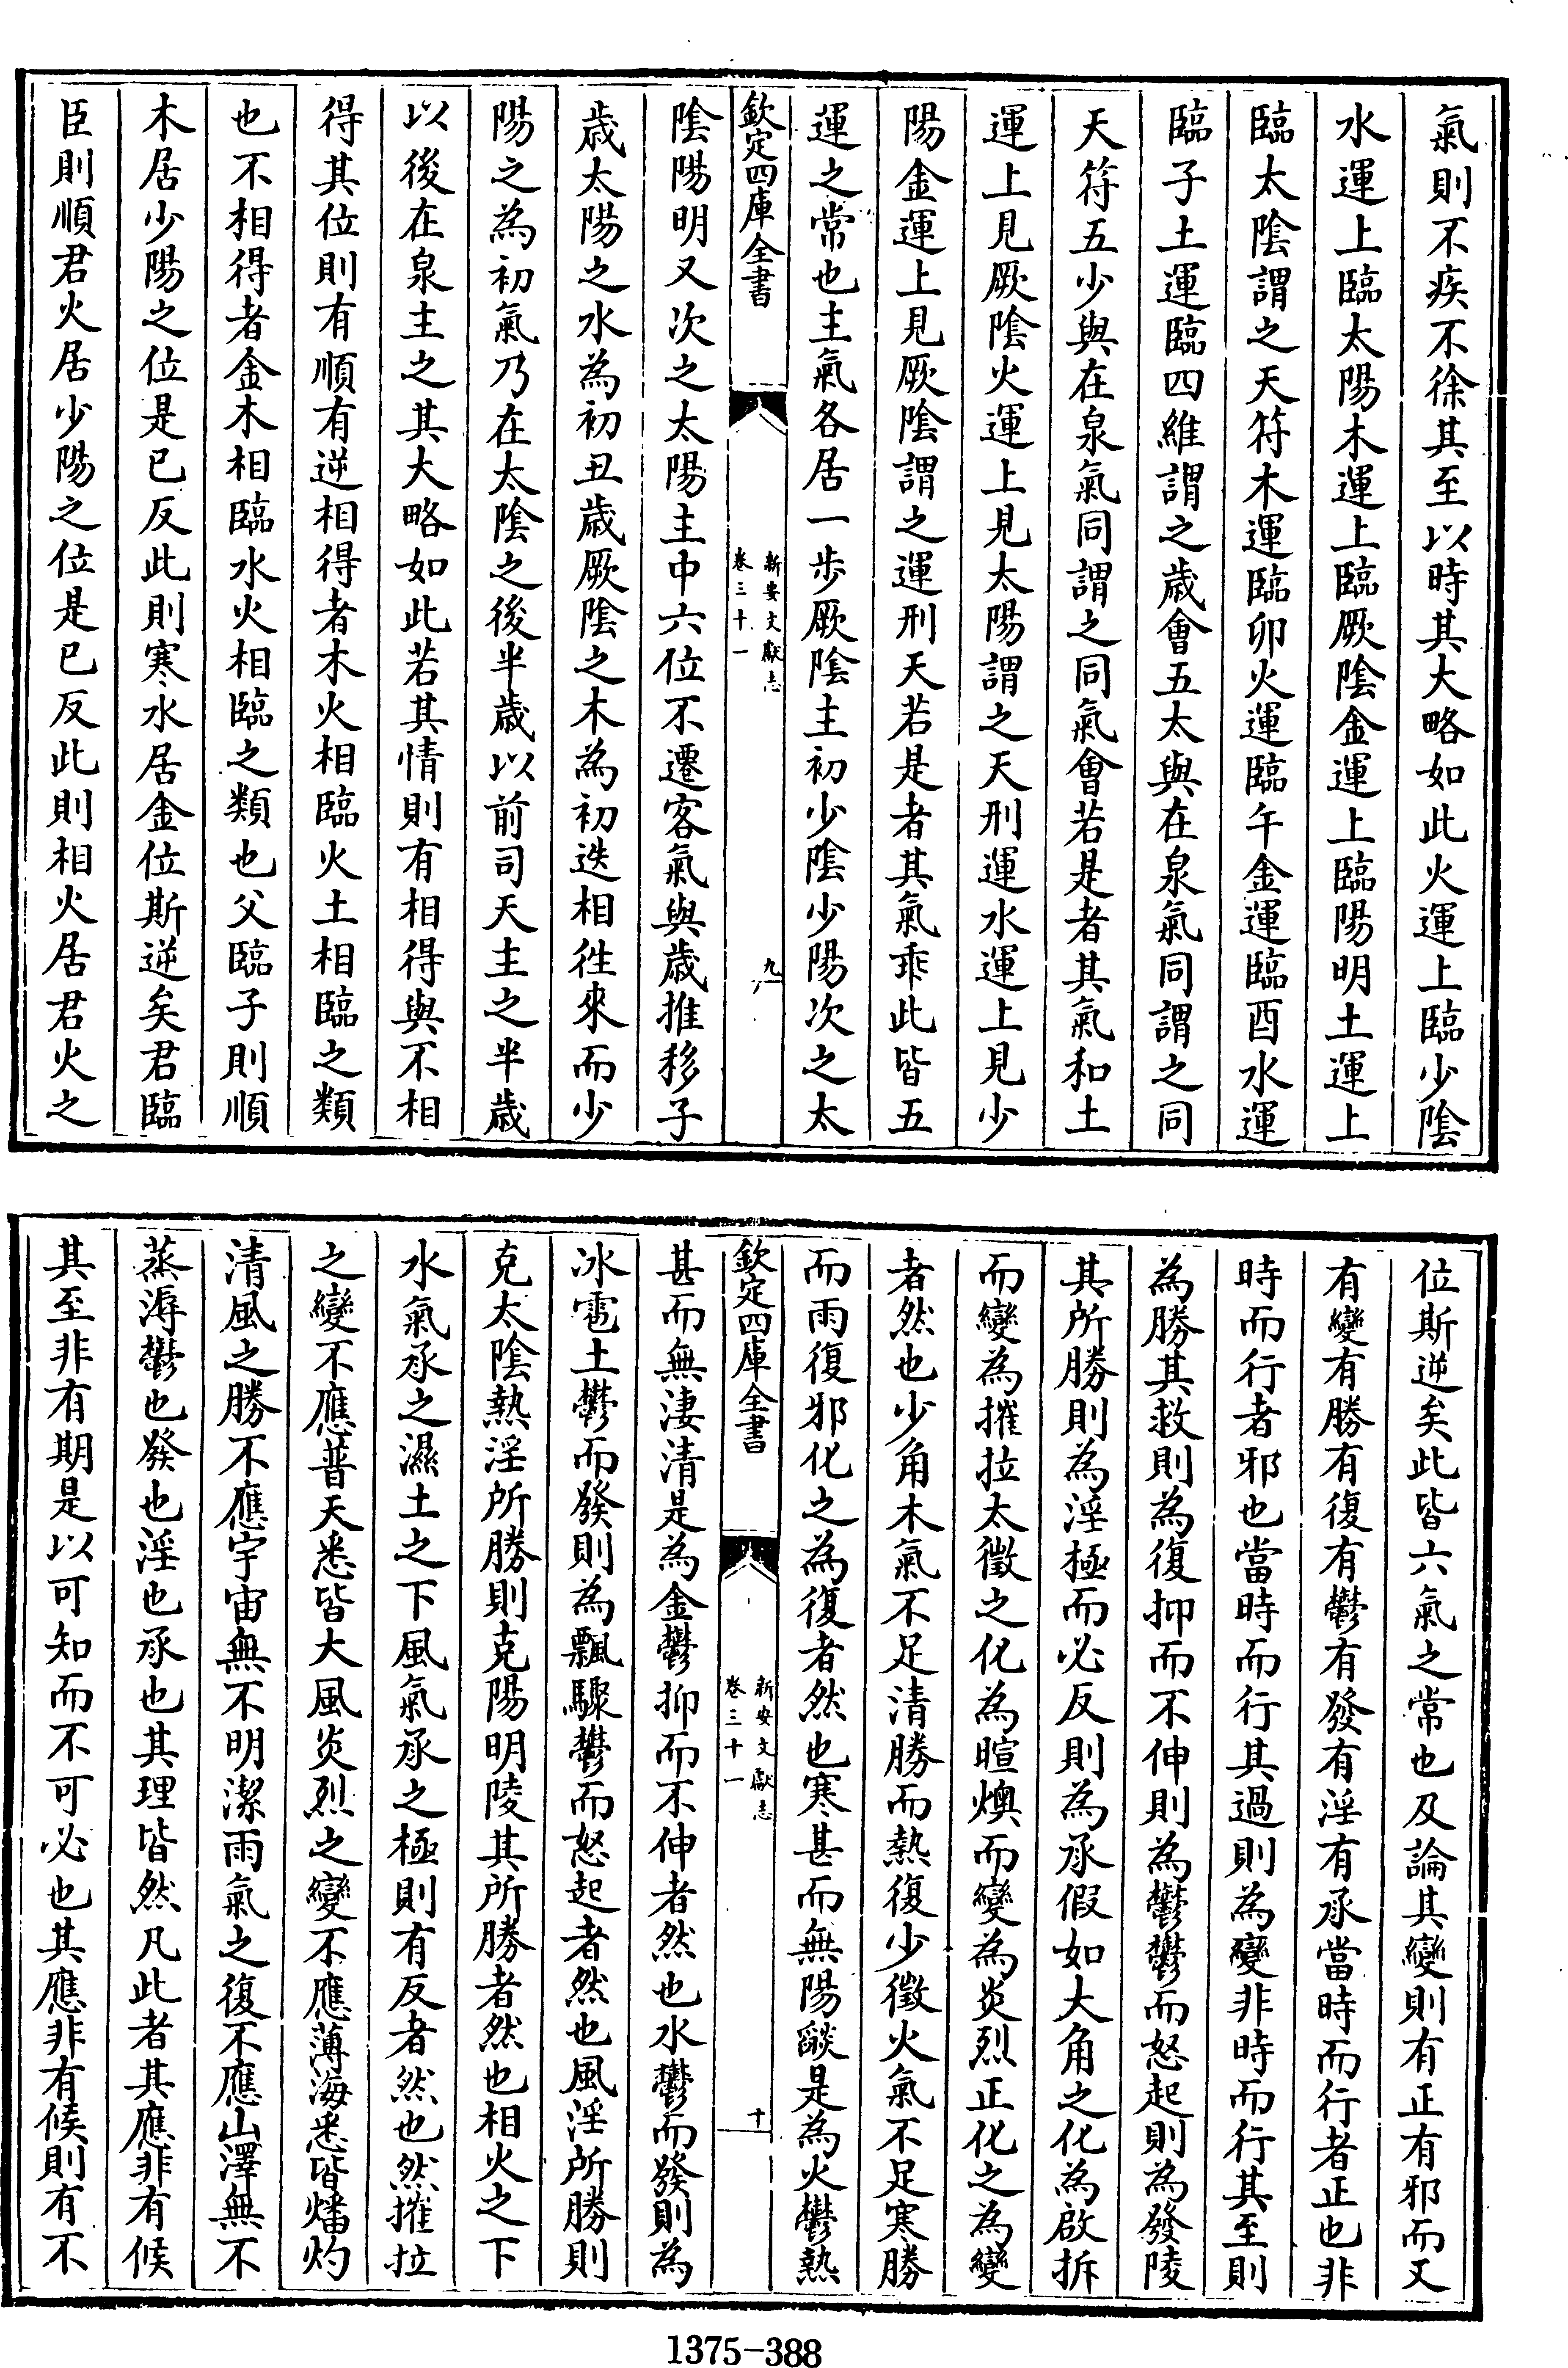 氣則不疾不徐其至以時其大略如此火運上臨少陰
水運上臨太陽木運上臨厥陰金運上臨陽明土運上
臨太陰謂之天符木運臨卯火運臨午金運臨酉水運
臨子土運臨四維謂之歲會五太與在泉氣同謂之同
天符五少與在泉氣同謂之同氣會若是者其氣和土
運上見厥陰火運上見太陽謂之天刑運水運上見少
陽金運上見厥陰謂之運刑天若是者其氣乖此皆五
運之常也主氣各居一步厥陰主初少陰少陽次之太
欽定四庫全書
新安文獻志
卷三十一
九
陰陽明又次之太陽主中六位不遷客氣與歲推移子
歲太陽之水為初丑歲厥陰之木為初迭相徃來而少
陽之為初氣乃在太陰之後半歲以前司天主之半歲
以後在泉主之其大略如此若其情則有相得與不相
得其位則有順有逆相得者木火相臨火土相臨之類
也不相得者金木相臨水火相臨之類也父臨子則順
木居少陽之位是已反此則寒水居金位斯逆矣君臨
臣則順君火居少陽之位是已反此則相火居君火之
位斯逆矣此皆六氣之常也及論其變則有正有邪而又
有變有勝有復有鬱有發有淫有承當時而行者正也非
時而行者邪也當時而行其過則為變非時而行其至則
為勝其救則為復抑而不伸則為鬱鬱而怒起則為發陵
其所勝則為淫極而必反則為承假如大角之化為啟拆
而變為摧拉太徵之化為暄燠而變為炎烈正化之為變
者然也少角木氣不足清勝而熱復少徵火氣不足寒勝
而雨復邪化之為復者然也寒甚而無陽燄是為火鬱熱
欽定四庫全書
新安文獻志
卷三十一
十
甚而無淒清是為金鬱抑而不伸者然也水鬱而發則為
冰雹土鬱而發則為飄驟鬱而怒起者然也風淫所勝則
克太陰熱淫所勝則克陽明陵其所勝者然也相火之下
水氣承之濕土之下風氣承之極則有反者然也然摧拉
之變不應普天悉皆大風炎烈之變不應薄海悉皆燔灼
清風之勝不應宇宙無不明潔雨氣之復不應山澤無不
蒸溽鬱也發也淫也承也其理皆然凡此者其應非有候
其至非有期是以可知而不可必也其應非有候則有不
1375-388